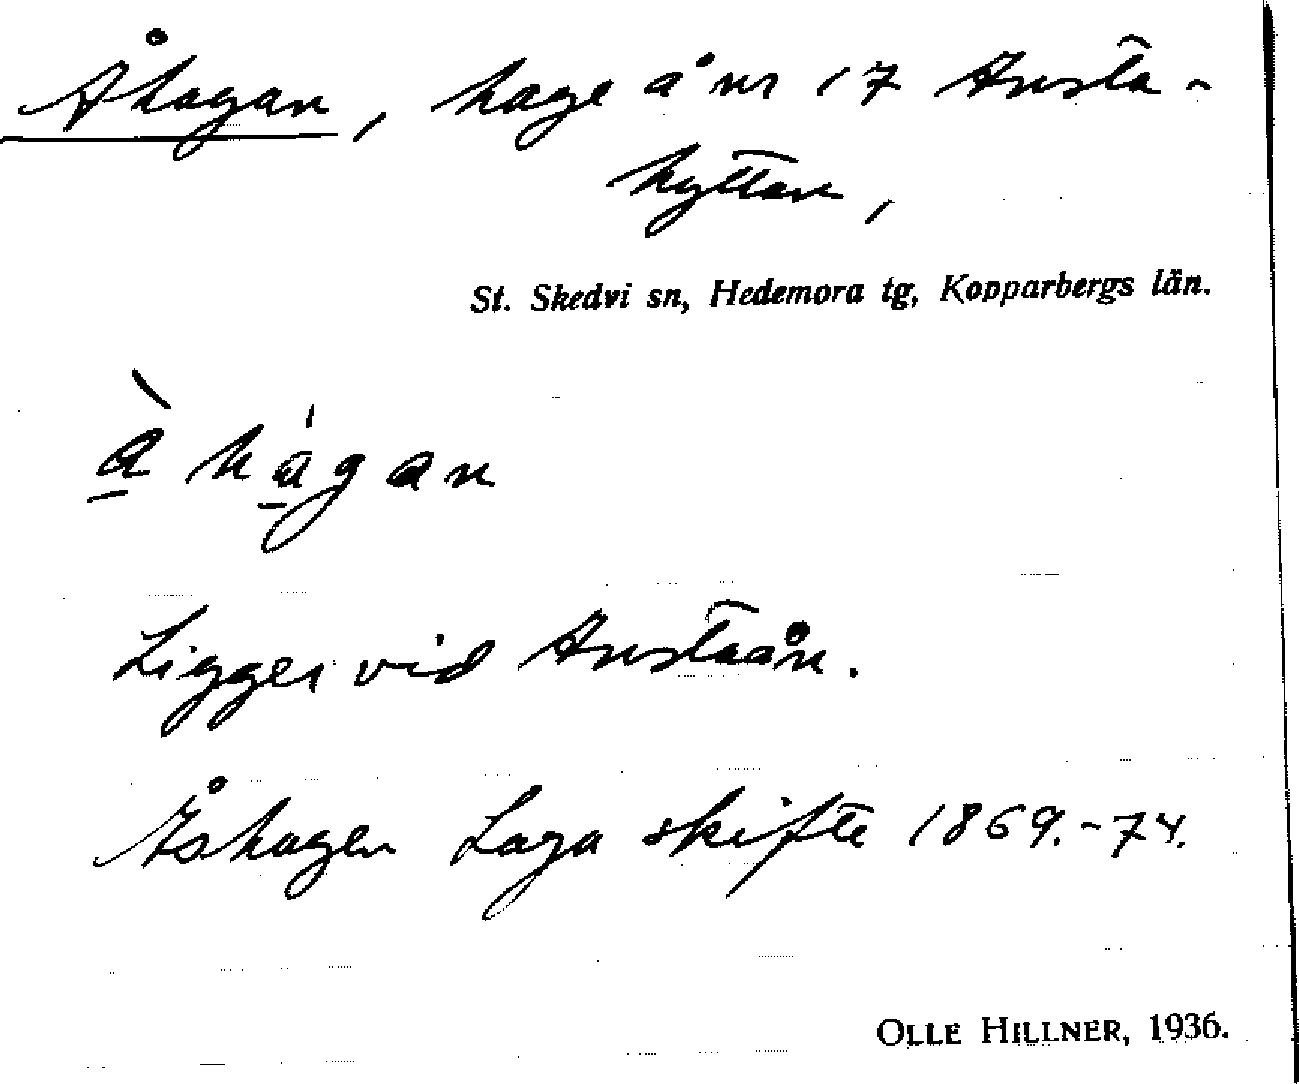 Åhagan, hage å nr 17 Ansta-
hyttan,
St. Skedvi sn, Hedemora tg, Kopparbergs län.
å̀ hágan
Ligger vid Anstaån.
Åshagen Laga skifte 1869.-74.
OLLE HILLNER, 1936.